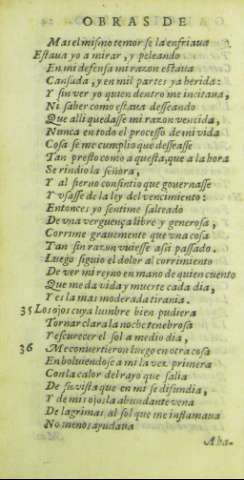 OBRAS DE
Mas el mismo temor se la enfriaua
Estaua yo a mirar, y peleando
En mi defensa mi razon estaua
Cansada, y en mil partes ya herida:
Y sin ver yo quien dentro me incitaua,
Ni saber como estaua desseando
Que alli quedasse mi razon vencida,
Nunca en todo el processo de mi vida
Cosa se me cumplio que desseasse
Tan presto como a questa, que a la hora
Se rindio la señora,
Y al sieruo consintio que gouernasse
Y vsasse de la ley del vencimiento:
Entonces yo sentime salteado
De vna verguença libre y generosa,
Corrime grauemente que vna cosa
Tan sin razon vuiesse assi passado.
Luego siguio el dolor al corrimiento
De ver mi reyno en mano de quien cuento
Que me da vida y muerte cada dia,
Y es la mas moderada tirania.
35 Los ojos cuya lumbre bien pudiera
Tornar clara la noche tenebrosa
Y escurecer el sol a medio dia,
36 Me conuertieron luego en otra cosa
En boluiendose a mi la vez primera
Con la calor del rayo que salia
De su vista que en mi se difundia,
Y de mis ojos la abundante vena
De lagrimas, al sol que me inflamaua
No menos ayudaua
Aba-